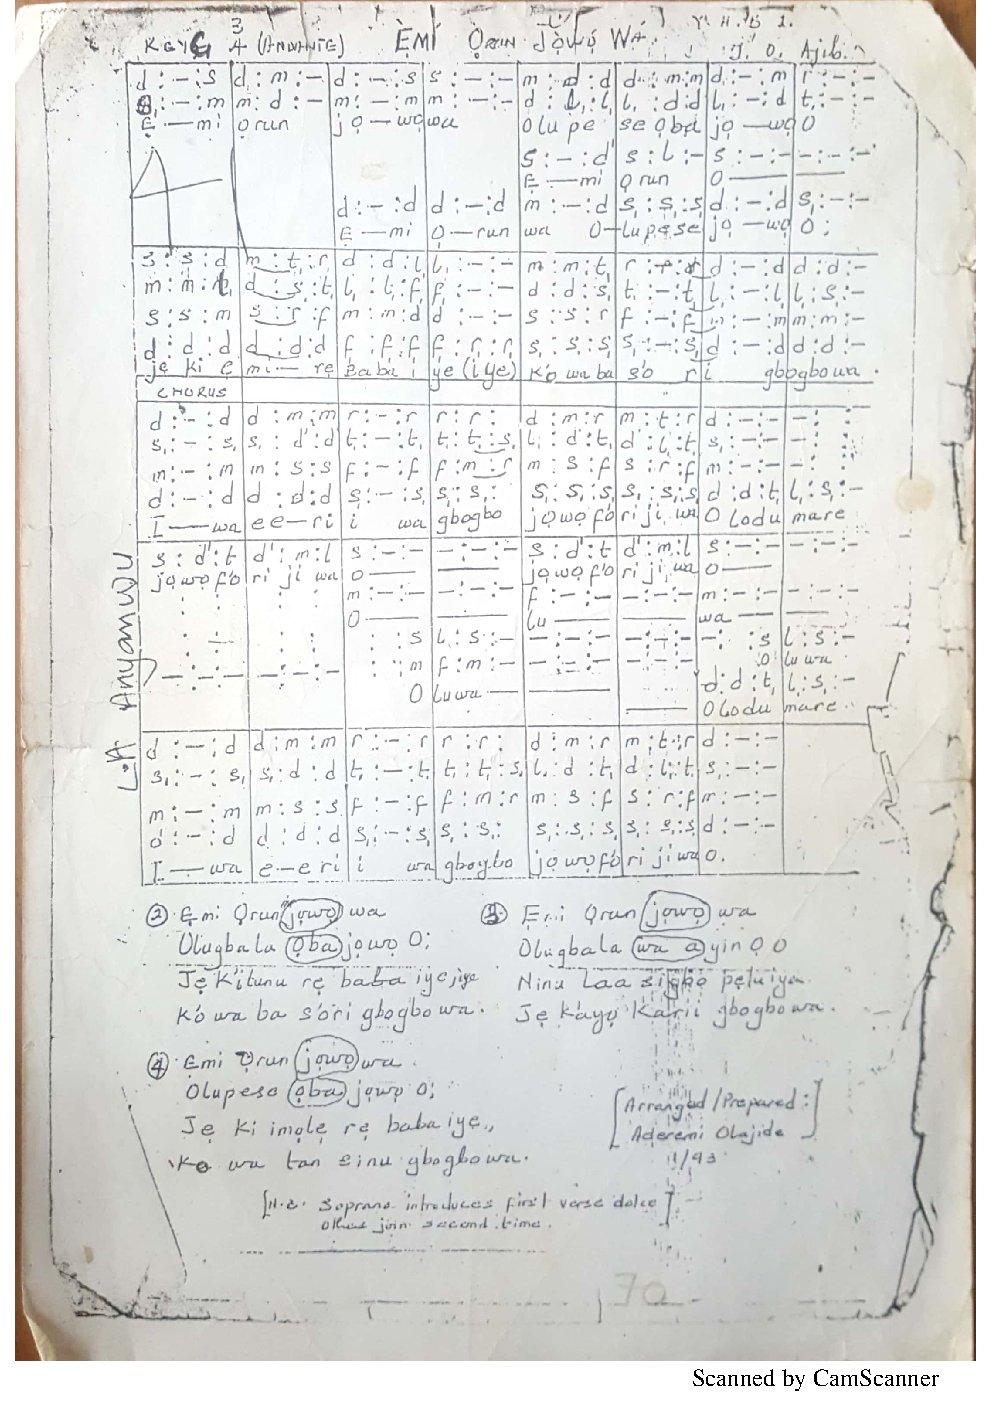 KEY G 3/4 (ANDANTE) ẸMI ỌRUN JỌWỌ WA Y.H.B 1.
J. O. Ajib.
d : – : s | d : m : – | d : – : s | s : – : – | m : d : d | d : m : m | d : – : m | r : – : –
: – : m | m : d : – | m : – : m | m : – : – | d : l, : l, | l, : d : d | l, : – : d | t, : – : –
Ẹ — mi ọrun jọ — wọ wa Olupe se ọba jọ — wọ O
s : – : d' | s : l : – | s : – : – | – : – : –
Ẹ — mi ọrun O ——
d : – : d | d : – : d | m : – : d | s, : s, : s, | d : – : d | s, : – : –
Ẹ — mi Ọ — run wa O — lupese jọ — wọ O ;
s : s : d | m : t, : r | d : d : l, | l, : – : – | m : m : t, | r : r : d | d : – : d | d : d : –
m : m : l, | d : s, : t, | l, : l, : f, | f, : – : – | d : d : s, | t, : – : t, | l, : – : l, | l, : s, : –
s : s : m | s : r : f | m : m : d | d : – : – | s : s : r | f : – : f | m : – : m | m : m : –
d : d : d | d : d : d | f, : f, : f, | f, : r, : r, | s, : s, : s, | s, : – : s, | d : – : d | d : d : –
jẹ ki ẹ mi — rẹ Baba i ye (iye) K'o wa ba s'o r i gbogbo wa .
CHORUS
d : – : d | d : m : m | r : – : r | r : r : | d : m : r | m : t, : r | d : – : – | – :
s, : – : s, | s, : d : d | t, : – : t, | t, : t, : s, | l, : d : t, | d : l, : t, | s, : – : – | – : :
m : – : m | m : s : s | f : – : f | f : m : r | m : s : f | s : r : f | m : – : – | – : :
d : – : d | d : d : d | s, : – : s, | s, : s, : | s, : s, : s, | s, : s, : s, | d : d : t, | l, : s, : –
I — wa ee — ri i wa gbogbo jọwọ fo ri ji wa O lodu mare
s : d' : t | d' : m : l | s : – : – | – : – : – | s : d' : t | d' : m : l | s : – : – | – : – : –
jọwọ f'o ri ji wa O —— jọwọ f'o ri ji wa O ——
m : – : – | – : – : – | f : – : – | – : – : – | m : – : – | – : – : –
O —— lu —— wa ——
: : s | l : s : – | – : – : – | – : – : – | – : : s | l : s : –
O lu wa
– : – : – | – : – : – | : : m | f : m : – | – : – : – | – : – : –
O luwa ——
d : d : t, | l, : s, : –
O lodu mare
L.A Anyanwu
d : – : d | d : m : m | r : – : r | r : r : | d : m : r | m : t, : r | d : – : –
s, : – : s, | s, : d : d | t, : – : t, | t, : t, : s, | l, : d : t, | d : l, : t, | s, : – : –
m : – : m | m : s : s | f : – : f | f : m : r | m : s : f | s : r : f | m : – : –
d : – : d | d : d : d | s, : – : s, | s, : s, : | s, : s, : s, | s, : s, : s, | d : – : –
I — wa e — e ri i wa gbogbo jọwọ f'o ri ji wa O .
② Ẹmi Ọrun jọwọ wa
Olugbala ọba jọwọ O;
Jẹ Kitunu rẹ baba iye,iye
K'o wa ba s'ori gbogbo wa .
③ Ẹmi Ọrun jọwọ wa
Olugbala wa a yin ọ o
Ninu Laa sigbo pẹlu iya
Jẹ k'ayọ Karii gbogbo wa .
④ Ẹmi Ọrun jọwọ wa .
Olupese ọba jọwọ O;
Jẹ Ki imọlẹ rẹ baba iye.,
Ko wa tan sinu gbogbo wa.
[Arranged/Prepared :]
Aderemi Olajide
11/93
[N.B. Soprano introduces first verse dolce
others join second time.]
70
Scanned by CamScanner